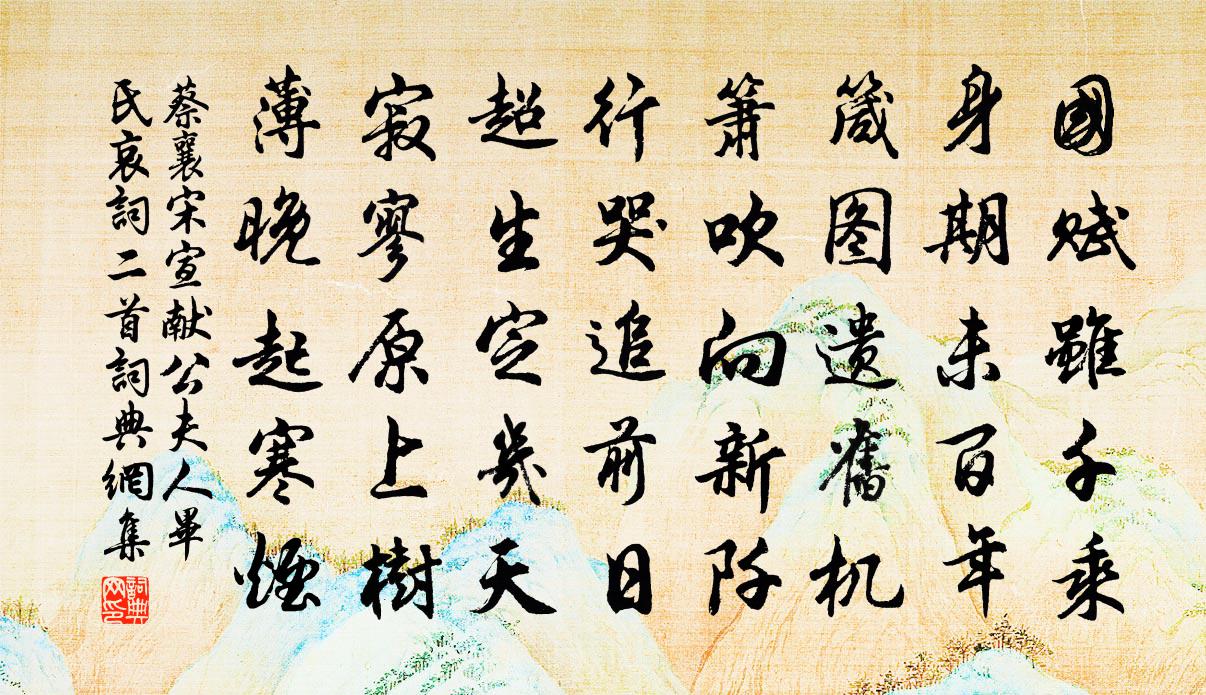 國賦雖千乘
身期未百年
箴图遗舊机
箫吹向新阡
行哭追前日
超生定幾天
寂寥原上樹
薄晚起寒煙
蔡襄宋宣献公夫人畢
氏哀詞二首詞典網集
詞典